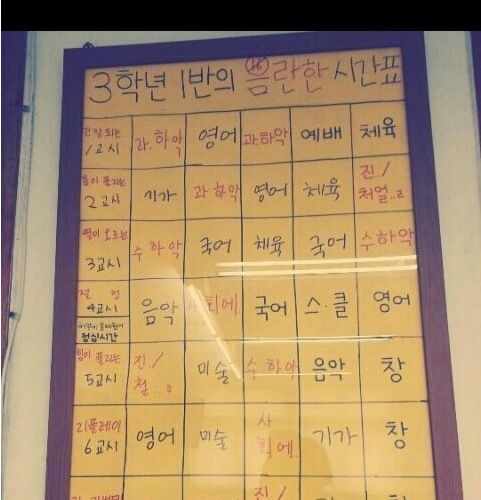 3학년 1반의 음란한 시간표
긴장되는 1교시 과.하악 영어 과하악 예배 체육
몸이 풀리는 2교시 기가 과하악 영어 체육 진../ 처얼..ㄹ
열이 오르는 3교시 수하악 국어 체육 국어 수하악
절정 4교시 음악 사회에 국어 스·클 영어
점심시간
힘이 풀리는 5교시 진./ 철...ㅎ 미술 수하악 음악 창
리플레이 6교시 영어 미술 사회에 기가 창
진/